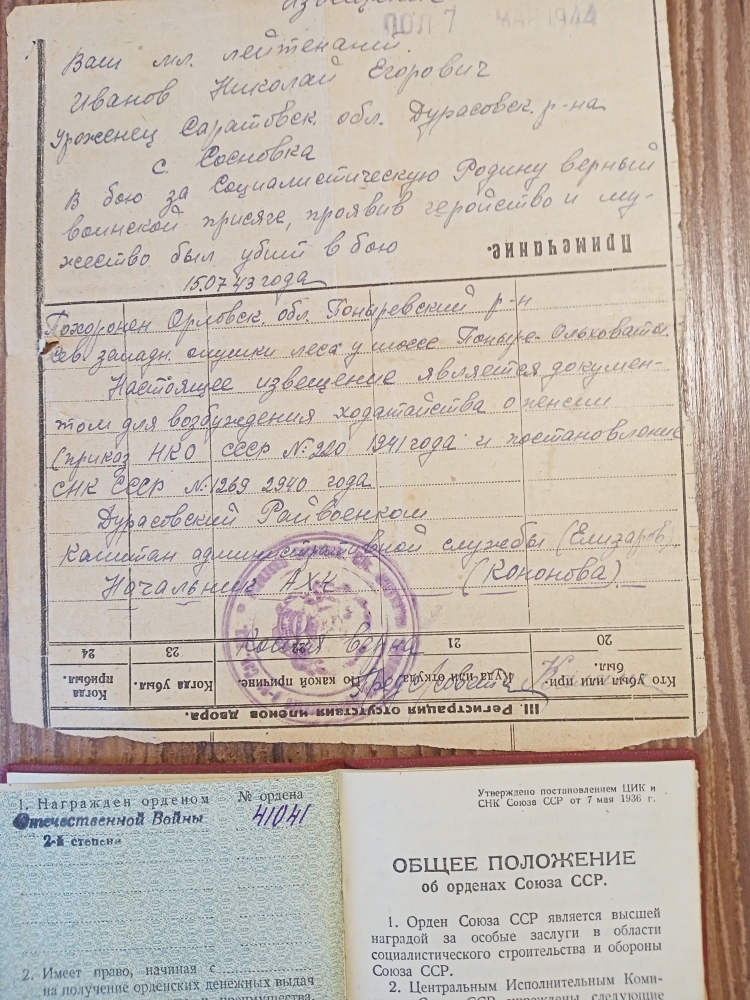 Извещение
ПОЛ 7 МАР 1944
Ваш мл. лейтенант.
Иванов Николай Егорович
Уроженец Саратовск. обл. Дурасовск. р-на
с. Сосновка
В бою за Социалистическую Родину верный
воинской присяге, проявив геройство и му-
жество был убит в бою
15.07.43 года
Примечание.
Похоронен Орловск. обл. Поныревский р-н
сев. западн. опушки леса у шоссе Поныре-Ольховаты.
Настоящее извещение является докумен-
том для возбуждения ходатайства о пенсии
(приказ НКО СССР №220 1941 года и постановление
СНК СССР №1269 2940 года
Дурасовский Райвоенком
Капитан административной службы (Елизаров)
Начальник АХЧ (Кононова)
Копия верна
20 21 22 23 24
Кто убыл или при- был. Куда или откуда. По какой причине. Когда убыл. Когда прибыл.
III. Регистрация отсутствия членов двора.
1. Награжден орденом № ордена
Отечественной Войны 41041
2-й степени
2. Имеет право, начиная с
на получение орденских денежных выдач
и преимущества,
Утверждено постановлением ЦИК и
СНК Союза ССР от 7 мая 1936 г.
ОБЩЕЕ ПОЛОЖЕНИЕ
об орденах Союза ССР.
1. Орден Союза ССР является высшей
наградой за особые заслуги в области
социалистического строительства и обороны
Союза ССР.
2. Центральным Исполнительным Коми-
Союза ССР учреждены следующие